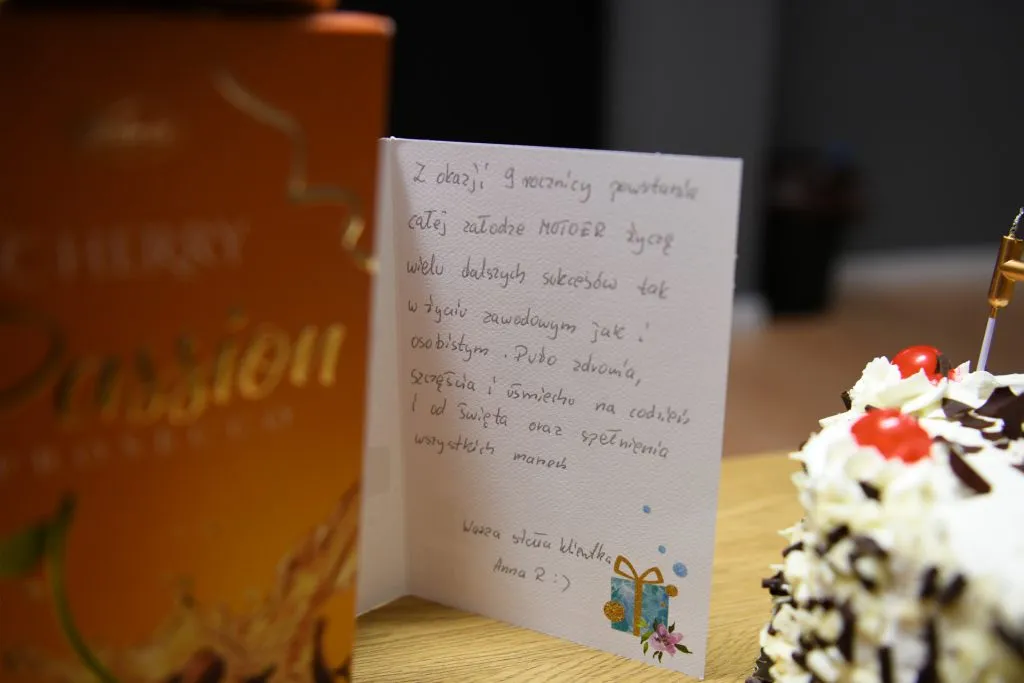 CHERRY
Passion
Z okazji 9 rocznicy powstania
całej załodze MOTOER życzę
wielu dalszych sukcesów tak
w życiu zawodowym jak i
osobistym. Dużo zdrowia,
szczęścia i uśmiechu na codzień
i od święta oraz spełnienia
wszystkich marzeń
Wasza stała klientka
Anna R :)